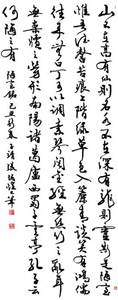 山不在高有仙則名水不在深有龍則靈斯是陋室
惟吾德馨苔痕上階綠草色入簾青談笑有鴻儒
往來無白丁可以調素琴閱金經無絲竹之亂耳
無案牘之勞形南陽諸葛廬西蜀子雲亭孔子云
何陋之有 陋室銘 己丑